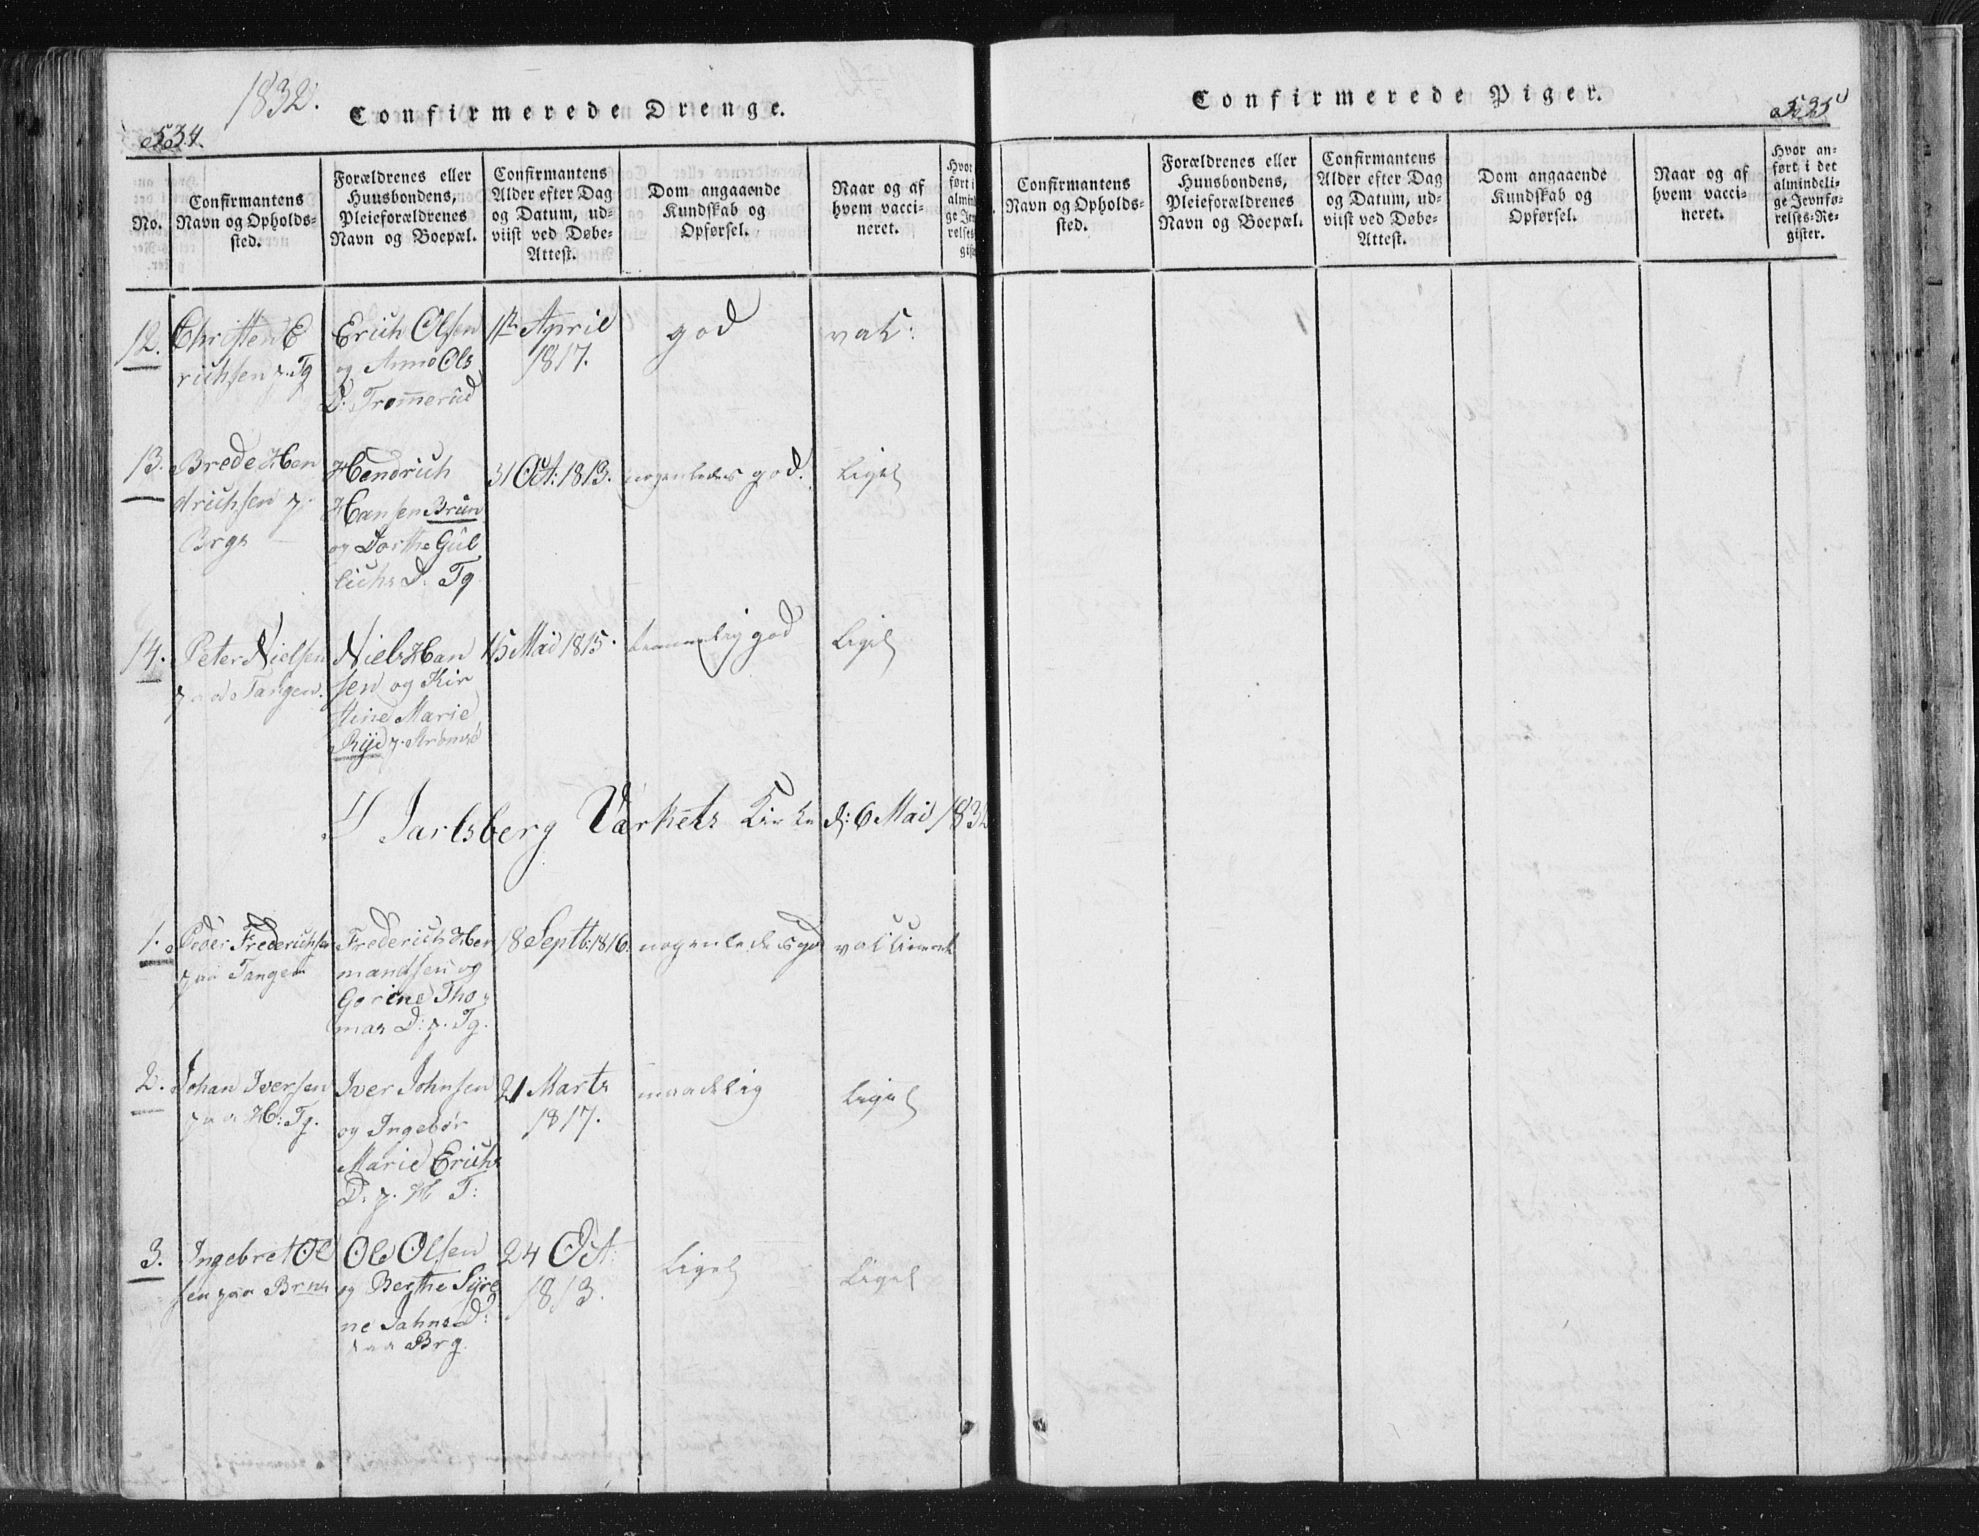 1832.
Confirmerede Drenge.
534.
No.
Confirmantens
Navn og Opholds-
sted.
Forældrenes eller
Huusbondens,
Pleieforældrenes
Navn og Boepæl.
Confirmantens
Alder efter Dag
og Datum, ud-
viist ved Døbe-
Attest.
Dom angaaende
Kundskab og
Opførsel.
Naar og af
hvem vacci-
neret.
12.
Christen E
richsen p. Tg
Erich Olsen
og Anne Ols
D: Trom̅erud
April
1817.
god
vac:
13.
Brede Hen
drichsen p.
Brgn
Hendrich
Hansen Bruun
og Dorthe Gul
lichs D. Tg
31 Oct: 1813.
nogenledes god.
Ligel
14.
Peter Nielsen
paa Tangen.
Niels Han
sen og Kir
stine Marie
Ryd p. Strømsø
15 Mai 1815.
temmelig god
Ligel
I Jarlsberg Værkets Kirke d: 6 Mai 1832
1.
Peder Frederichsen
paa Tangen
Frederich Her
mandsen og
Gorine Tho
mas D: p. Tg.
18 Septb: 1816.
nogenledes god
vaccineret
2.
Johan Iversen
paa H: Tg.
Iver Johnsen
og Ingebør
Marie Erichs
D: p. H T:
21 Marts
1817.
maadelig
Ligel
3.
Ingebret Ol
sen paa Brnr
Ole Olsen
og Berthe Syre
ne Jahns D:
paa Brg.
24 Oct:
1813.
Ligel
Ligel
Confirmerede Piger.
535
Confirmantens
Navn og Opholds-
sted.
Forældrenes eller
Huusbondens,
Pleieforældrenes
Navn og Boepæl.
Confirmantens
Alder efter Dag
og Datum, ud-
viist ved Døbe-
Attest.
Dom angaaende
Kundskab og
Opførsel.
Naar og af
hvem vacci-
neret.
Hvor an-
ført i det
almindeli-
ge Jevnfø-
relses-Re-
gister.